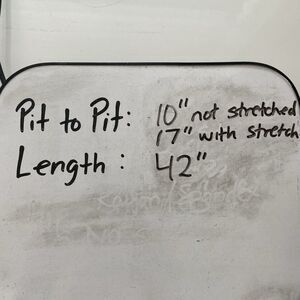 Pit to Pit: 10" not stretched
17" with stretch
Length: 42"